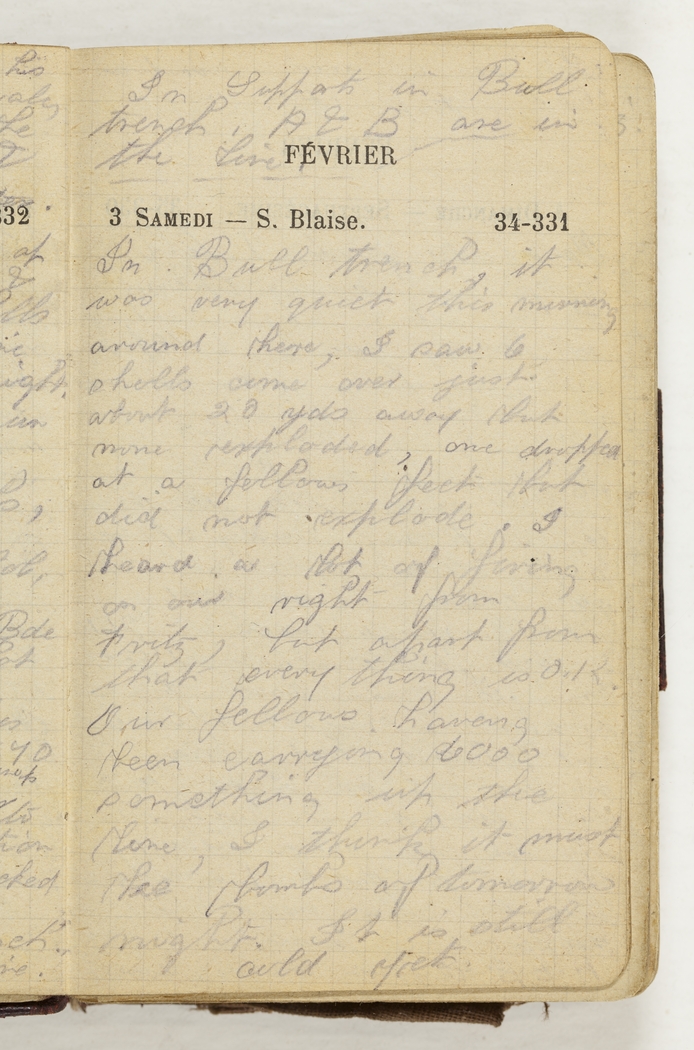 his
In Supports in Bull
trench, A & B are in
the Line,
FÉVRIER
332
3 SAMEDI — S. Blaise. 34-331
In Bull trench, it
was very quiet this morning
around here, I saw 6
shells come over just
about 20 yds away but
none exploded, one dropped
at a fellows feet but
did not explode. I
heard a lot of firing
on our right from
Fritz, but apart from
that every thing is O.K
Our fellows haveng
been carryong 6000
something up the
line, I think it must
be bombs of tomorrow
night. It is still
cold yet.
at
ight.
in
Bde
40
tion